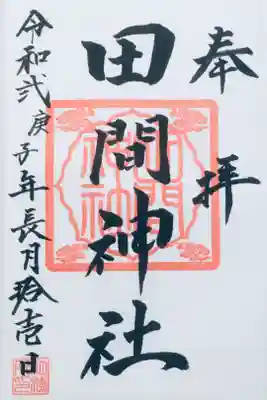 奉拝
田間神社
令和弐庚子年長月拾壱日